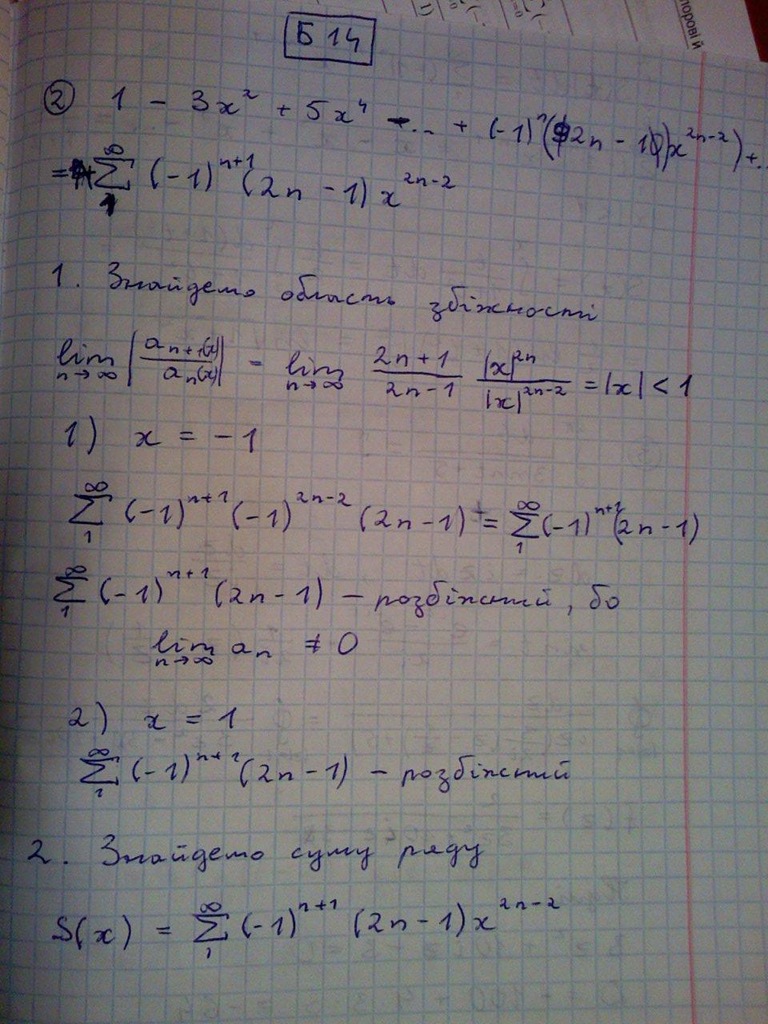 Б 14
② 1 - 3x² + 5x⁴ - ... + (-1)ⁿ(2n - 1)x²ⁿ⁻²) + ..
= ∑₁^∞ (-1)ⁿ⁺¹ (2n - 1) x²ⁿ⁻²
1. Знайдемо область збіжності
lim n→∞ |aₙ₊₁(x)/aₙ(x)| = lim n→∞ (2n + 1)/(2n - 1) |x|²ⁿ/|x|²ⁿ⁻² = |x| < 1
1) x = -1
∑₁^∞ (-1)ⁿ⁺¹ (-1)²ⁿ⁻² (2n - 1) = ∑₁^∞ (-1)ⁿ⁺¹(2n - 1)
∑₁^∞ (-1)ⁿ⁺¹ (2n - 1) - розбіжний, бо
lim n→∞ aₙ ≠ 0
2) x = 1
∑₁^∞ (-1)ⁿ⁺¹ (2n - 1) - розбіжний
2. Знайдемо суму ряду
S(x) = ∑₁^∞ (-1)ⁿ⁺¹ (2n - 1) x²ⁿ⁻²